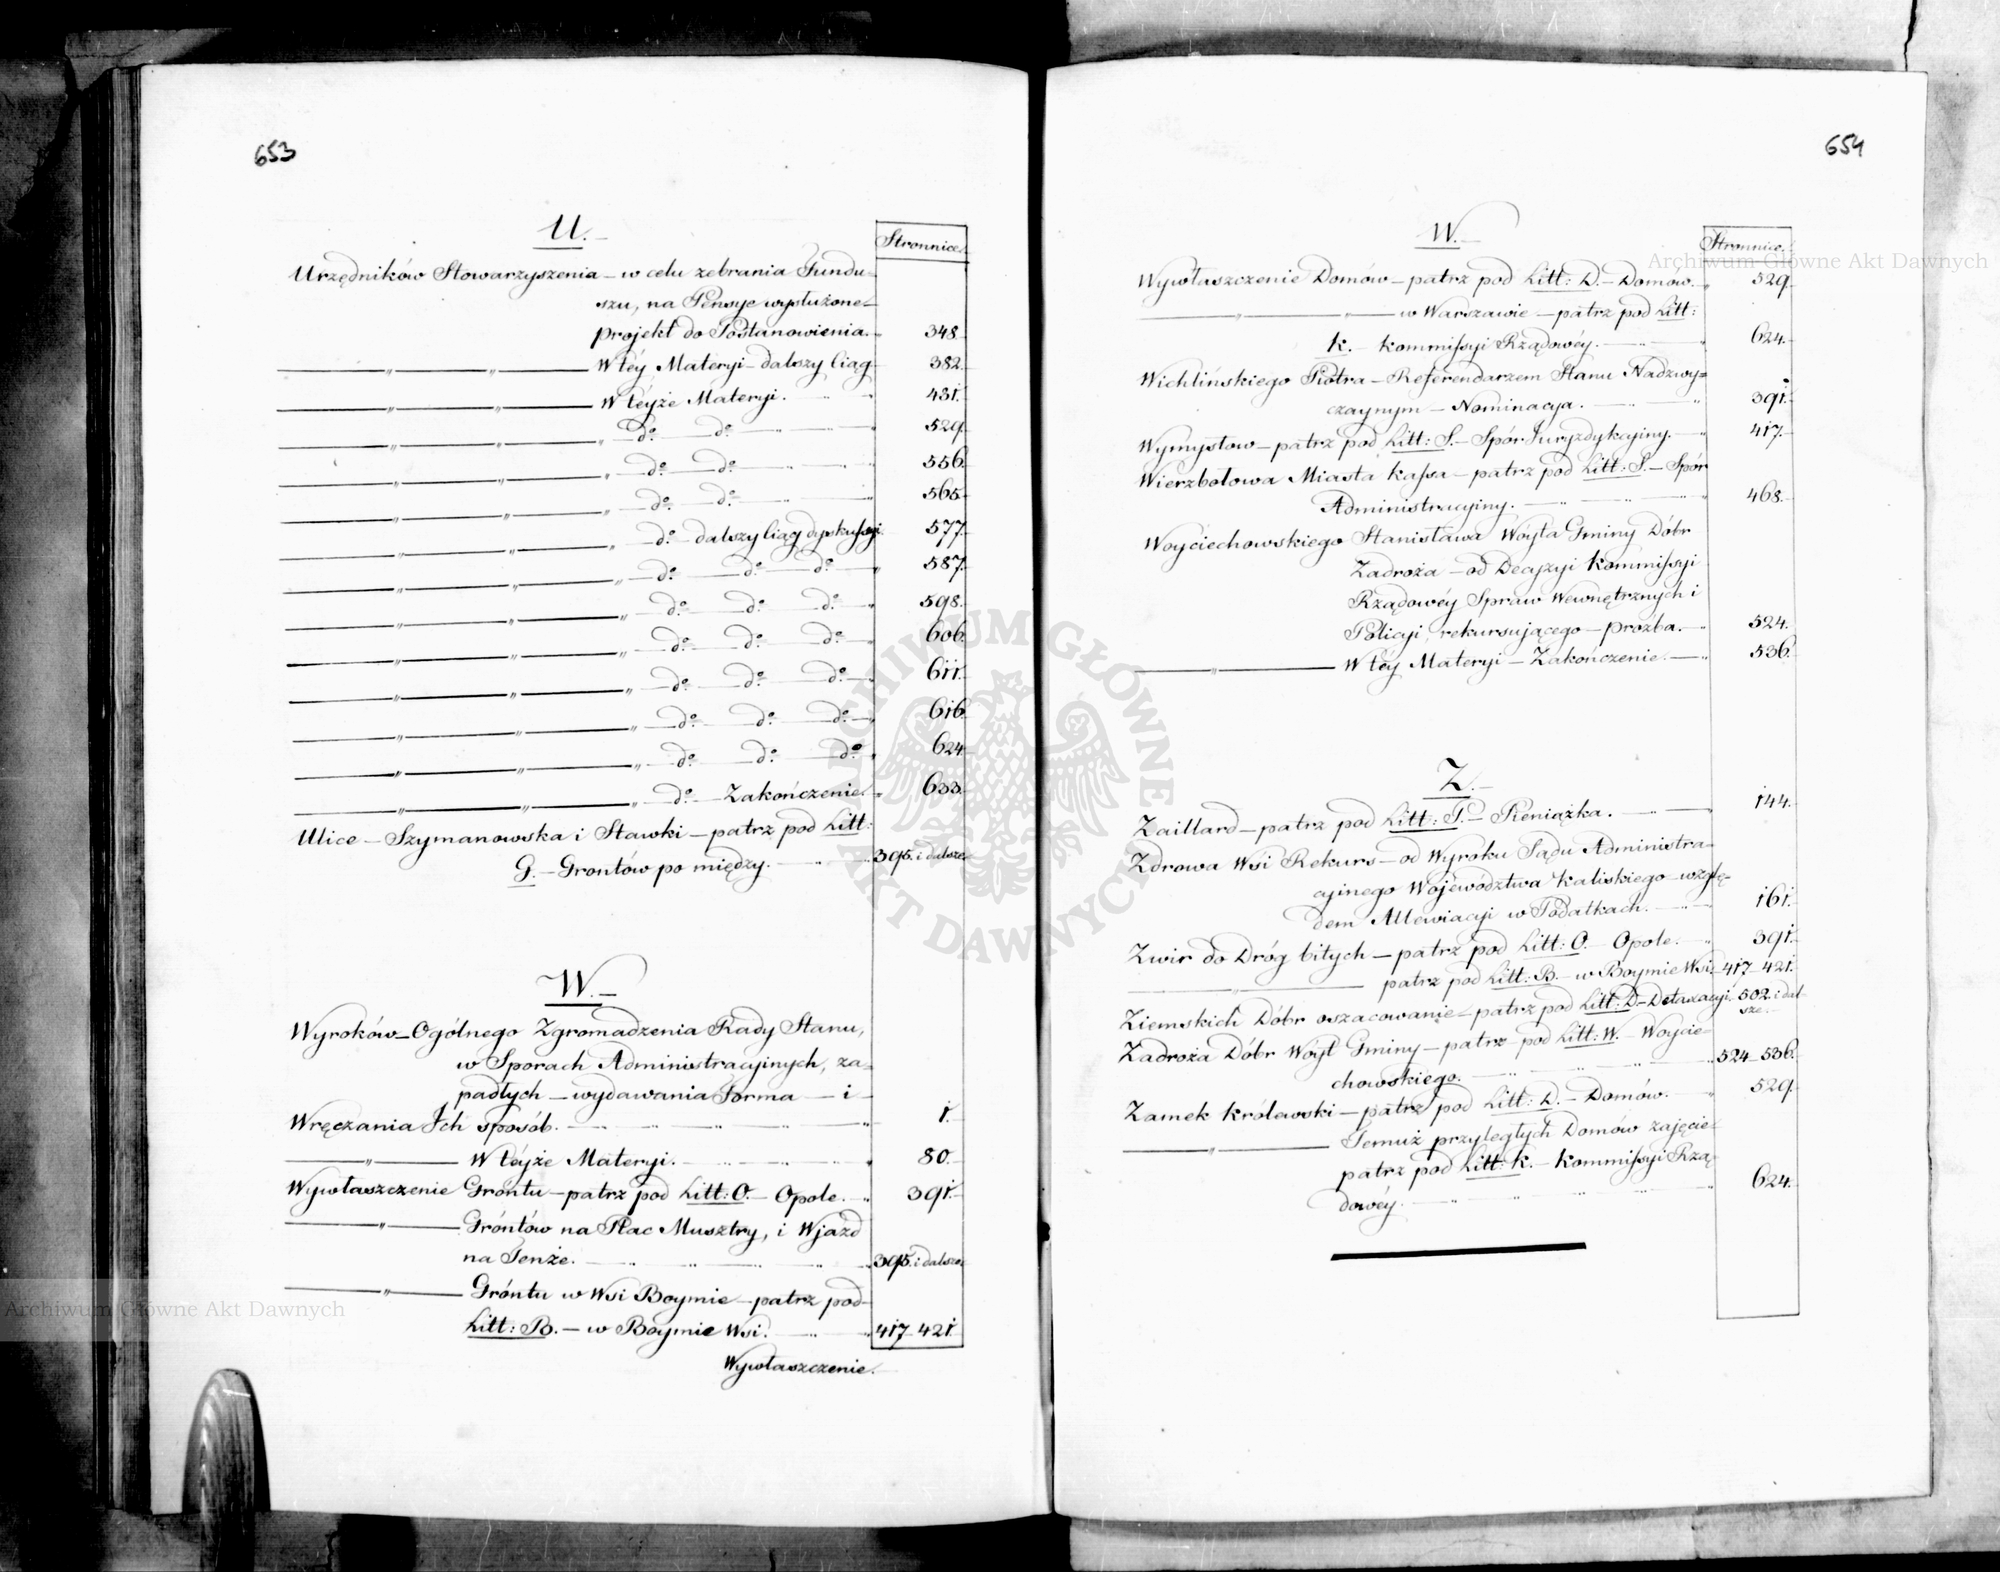 653
U.
Stronnice.
Urzędników Stowarzyszenia – w celu zebrania Fundu-
szu, na Pensye wysłużone –
projekt do Postanowienia. 348.
— " — " — W téy Materyi – dalszy Ciąg. 382.
— " — " — W téyże Materyi. 431.
— " — " — do do 529.
— " — " — do do 556.
— " — " — do do 565.
— " — " — do – dalszy Ciąg dyskussyi. 577.
— " — " — do do do 587.
— " — " — do do do 598.
— " — " — do do do 606.
— " — " — do do do 611.
— " — " — do do do 616.
— " — " — do do do 624.
— " — " — do – Zakończenie. 633.
Ulice – Szymanowska i Stawki – patrz pod Litt:
G. – Grontów po między. 395. i dalsze
W. –
Wyroków – Ogólnego Zgromadzenia Rady Stanu,
w Sporach Administracyinych, za-
padłych – wydawania Forma — i –
Wręczania Ich sposób. 1.
— " — W téyże Materyi. 80.
Wywłaszczenie Grontu – patrz pod Litt: O. – Opole. 391.
— " — Gróntów na Plac Musztry, i Wjazd
na Tenże. 395. i dalsze
— " — Gróntu w Wsi Boymie – patrz pod –
Litt: B. – w Boymie Wsi. 417 – 421.
Wywłaszczenie.
654
W. –
Stronnice.
Wywłaszczenie Domów – patrz pod Litt: D. – Domów. 529.
— " — " — w Warszawie – patrz pod Litt:
K. – Kommissyi Rządowéy. 624.
Wichlińskiego Piotra – Referendarzem Stanu Nadzwy-
czaynym – Nominacya. 391.
Wymysłow – patrz pod Litt: S. – Spór Juryzdykcyiny. 417.
Wierzbołowa Miasta Kassa – patrz pod Litt: S. – Spór
Administracyiny. 468.
Woyciechowskiego Stanisława Wóyta Gminy Dóbr
Zadroża – od Decyzyi Kommissyi
Rządowéy Spraw Wewnętrznych i
Policyi, rekursującego – proźba. 524.
— " — W téy Materyi – Zakończenie. 536.
Z. –
Zaillard – patrz pod Litt: P. – Pieniążka. 144.
Zdrowa Wsi Rekurs – od Wyroku Sądu Administra-
cyinego Województwa Kaliskiego – wzglę-
dem Allewiacyi w Podatkach. 161.
Zwir do Dróg bitych – patrz pod Litt: O. – Opole. 391.
— " — patrz pod Litt: B. – w Boymie Wsi. 417 – 421.
Ziemskich Dóbr oszacowanie – patrz pod Litt: D – Detaxacyi. 502. i dal-
sze.
Zadroża Dóbr Wóyt Gminy – patrz pod Litt: W. – Woycie-
chowskiego. 524 – 536.
Zamek Królewski – patrz pod Litt: D. – Domów. 529.
— " — Temuż przyległych Domów zajęcie
patrz pod Litt: K. – Kommissyi Rzą-
dowéy. 624.
Archiwum Główne Akt Dawnych
Archiwum Główne Akt Dawnych
ARCHIWUM GŁÓWNE AKT DAWNYCH